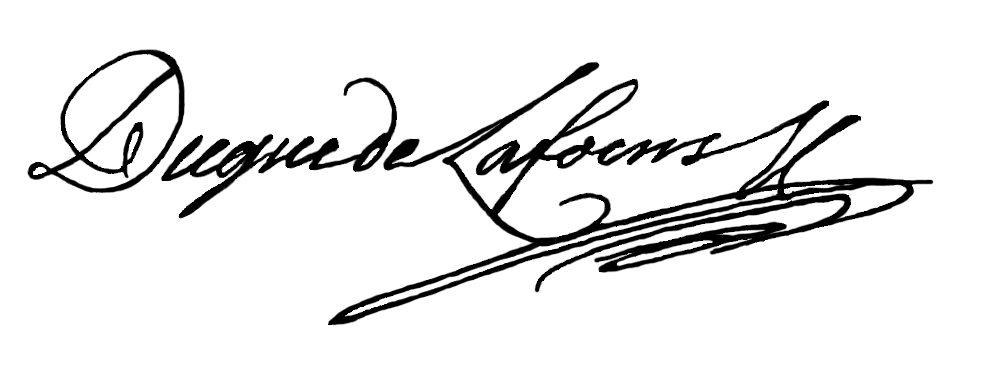 Duque de Lafoens